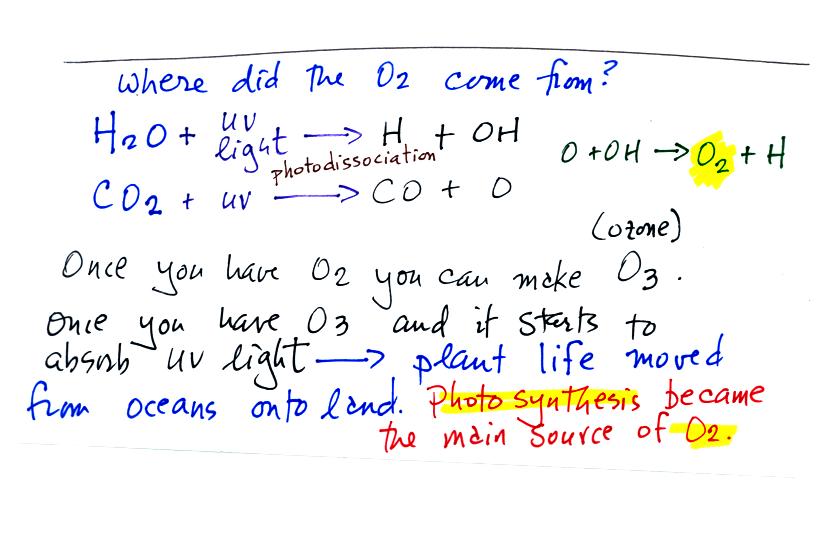 Where did the O2 come from?
H2O + uv light → H + OH
photodissociation
O + OH → O2 + H
CO2 + uv → CO + O
(ozone)
Once you have O2 you can make O3.
Once you have O3 and it starts to
absorb uv light → plant life moved
from oceans onto land. Photosynthesis became
the main source of O2.